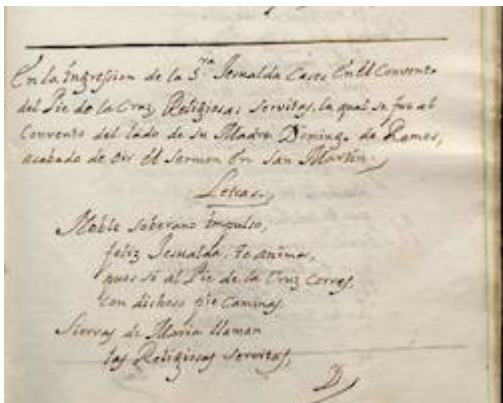 En la Ingression de la S.ra Jesualda Cases En El Convento
del Pie de la Cruz, Religiosas Servitas, la qual se fue al
Convento del lado de su Madre Doming.o de Ramos,
acabado de oir El Sermon En San Martin.
Letras.
Noble soberano impulso,
feliz Jesualda, te anima,
pues si al Pie de la Cruz Corres,
con dichoso pie Caminas.
Siervas de Maria llaman
las Religiosas Servitas,